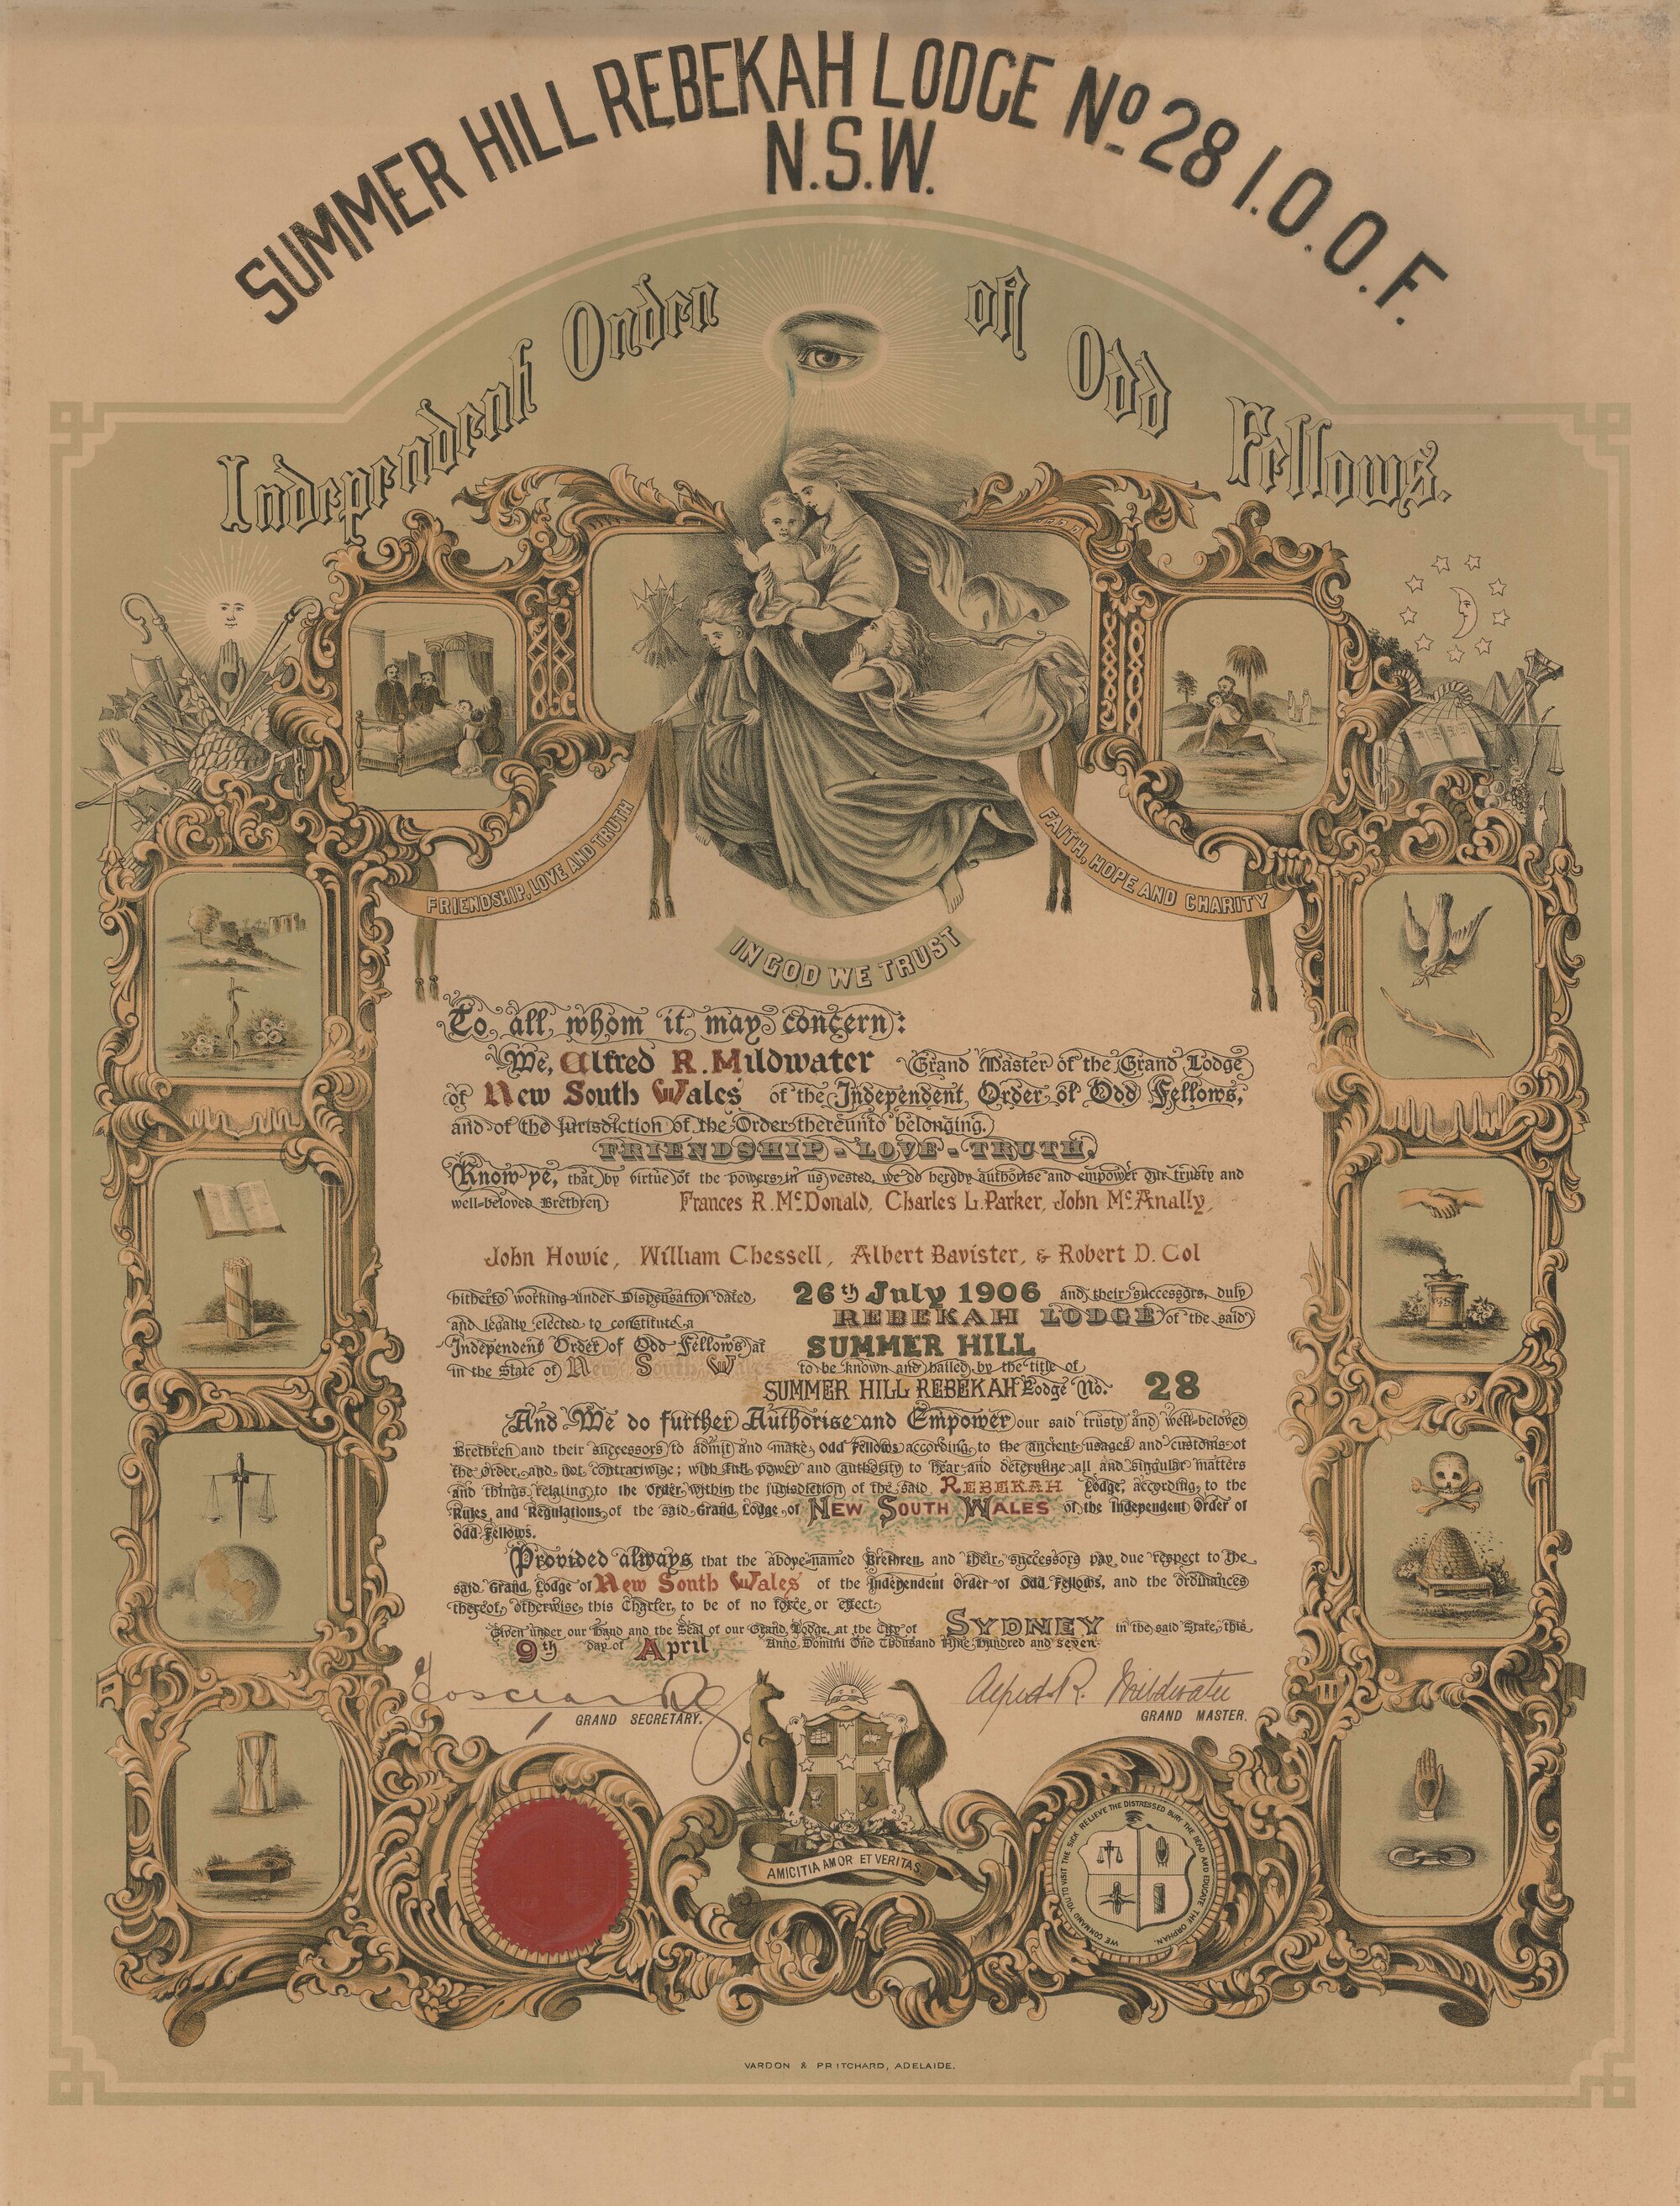 SUMMER HILL REBEKAH LODGE No. 28 I.O.O.F.
N.S.W.
Independent Order of Odd Fellows.
FRIENDSHIP, LOVE AND TRUTH
FAITH, HOPE AND CHARITY
IN GOD WE TRUST
To all whom it may concern:
We, Alfred R. Mildwater Grand Master of the Grand Lodge
of New South Wales of the Independent Order of Odd Fellows,
and of the jurisdiction of the Order thereunto belonging.
FRIENDSHIP - LOVE - TRUTH.
Know ye, that by virtue of the powers in us vested, we do hereby authorise and empower our trusty and
well-beloved Brethren Frances R. McDonald, Charles L. Parker, John McAnally,
John Howie, William Chessell, Albert Bavister, & Robert D. Col
hitherto working under Dispensation dated, 26th July 1906 and their successors, duly
and legally elected to constitute a REBEKAH LODGE of the said
Independent Order of Odd Fellows at SUMMER HILL
in the State of New South Wales to be known and hailed by the title of
SUMMER HILL REBEKAH Lodge No. 28
And We do further Authorise and Empower our said trusty and well-beloved
Brethren and their successors to admit and make Odd Fellows according to the ancient usages and customs of
the Order, and not contrariwise; with full power and authority to hear and determine all and singular matters
and things relating to the Order within the jurisdiction of the said REBEKAH Lodge, according to the
Rules and Regulations of the said Grand Lodge of NEW SOUTH WALES of the Independent Order of
Odd Fellows.
Provided always that the above-named Brethren, and their successors pay due respect to the
said Grand Lodge of New South Wales of the Independent Order of Odd Fellows, and the ordinances
thereof, otherwise, this Charter, to be of no force or effect.
Given under our Hand and the Seal of our Grand Lodge, at the City of SYDNEY in the said State, this
9th day of April Anno Domini One Thousand Nine Hundred and seven.
GRAND SECRETARY.
Alfred R. Mildwater
GRAND MASTER.
AMICITIA AMOR ET VERITAS.
WE COMMAND YOU TO VISIT THE SICK RELIEVE THE DISTRESSED BURY THE DEAD AND EDUCATE THE ORPHAN.
VARDON & PRITCHARD, ADELAIDE.